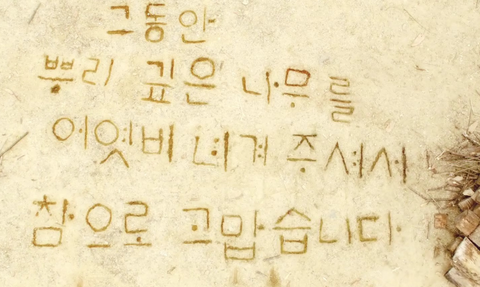 그동안
뿌리 깊은 나무를
어엿비 녀겨 주셔서
참으로 고맙습니다